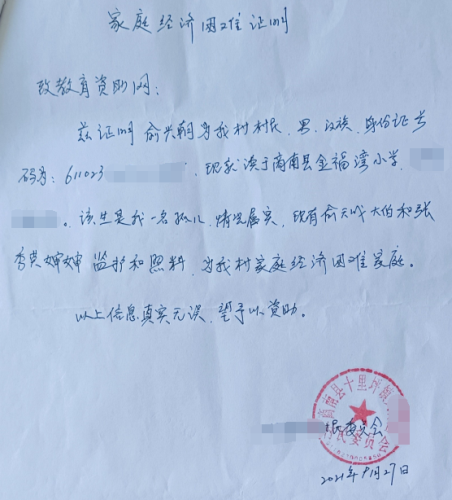 家庭经济困难证明
致教育资助网:
兹证明俞兴朝为我村村民,男,汉族,身份证号
码为:611023 ,现就读于商南县金福湾小学,
。该生是我一名孤儿,情况属实,现有俞天成大伯和张
秀英婶婶监护和照料,为我村家庭经济困难家庭。
以上信息真实无误,望予以资助。
商南县十里坪镇
民委员会
民委员会
2021年 月27日